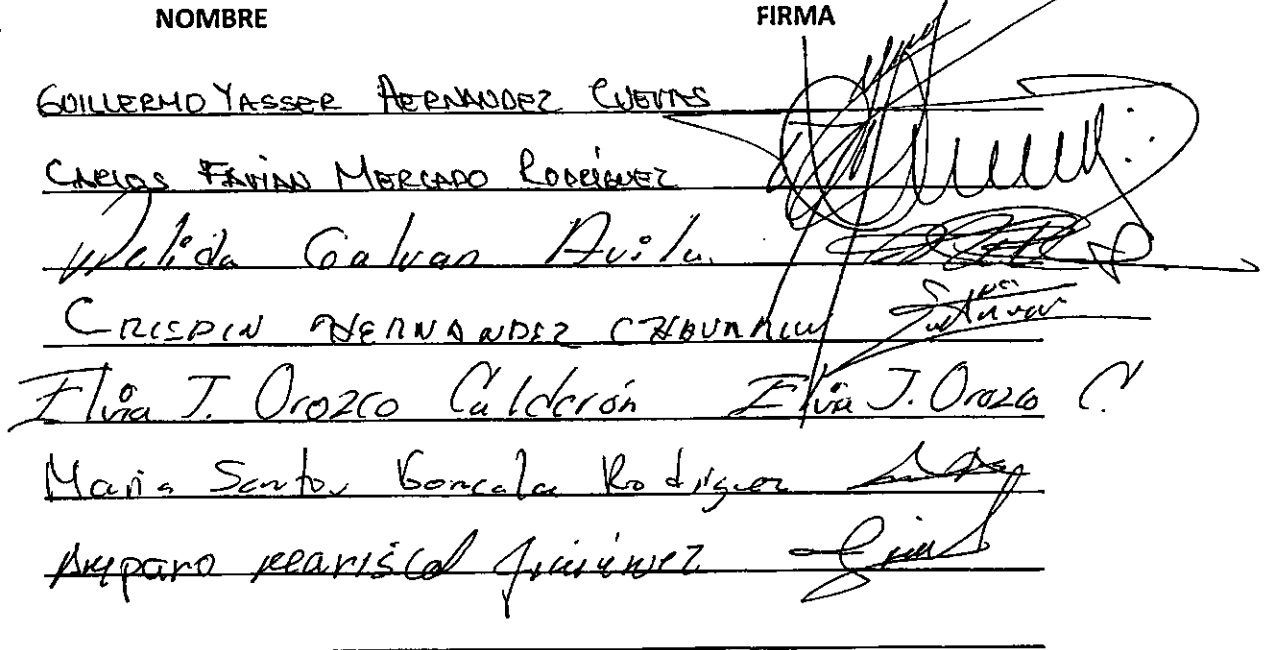 NOMBRE FIRMA
GUILLERMO YASSER HERNANDEZ CUEVAS
CARLOS FAVIAN MERCADO RODRÍGUEZ
Melida Galvan Avila.
CRISPIN HERNANDEZ
Elvia J. Orozco Calderón Elvia J. Orozco C.
Maria Santos Rodriguez
Amparo Mariscal Jiménez